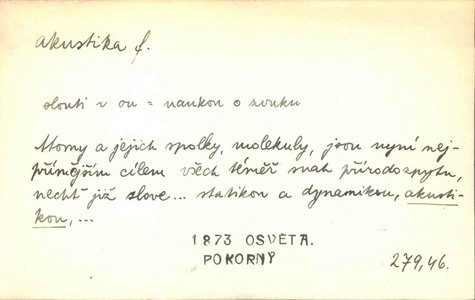 akustika f.
slouti v ou = naukou o zvuku
Atomy a jejich spolky, molekuly, jsou nyní nej-
přísnějším cílem všech téměř snah přírodozpytu,
nechť již slove... statikou a dynamikou, akusti-
kou, ...
1873 OSVĚTA.
POKORNÝ
279,46.